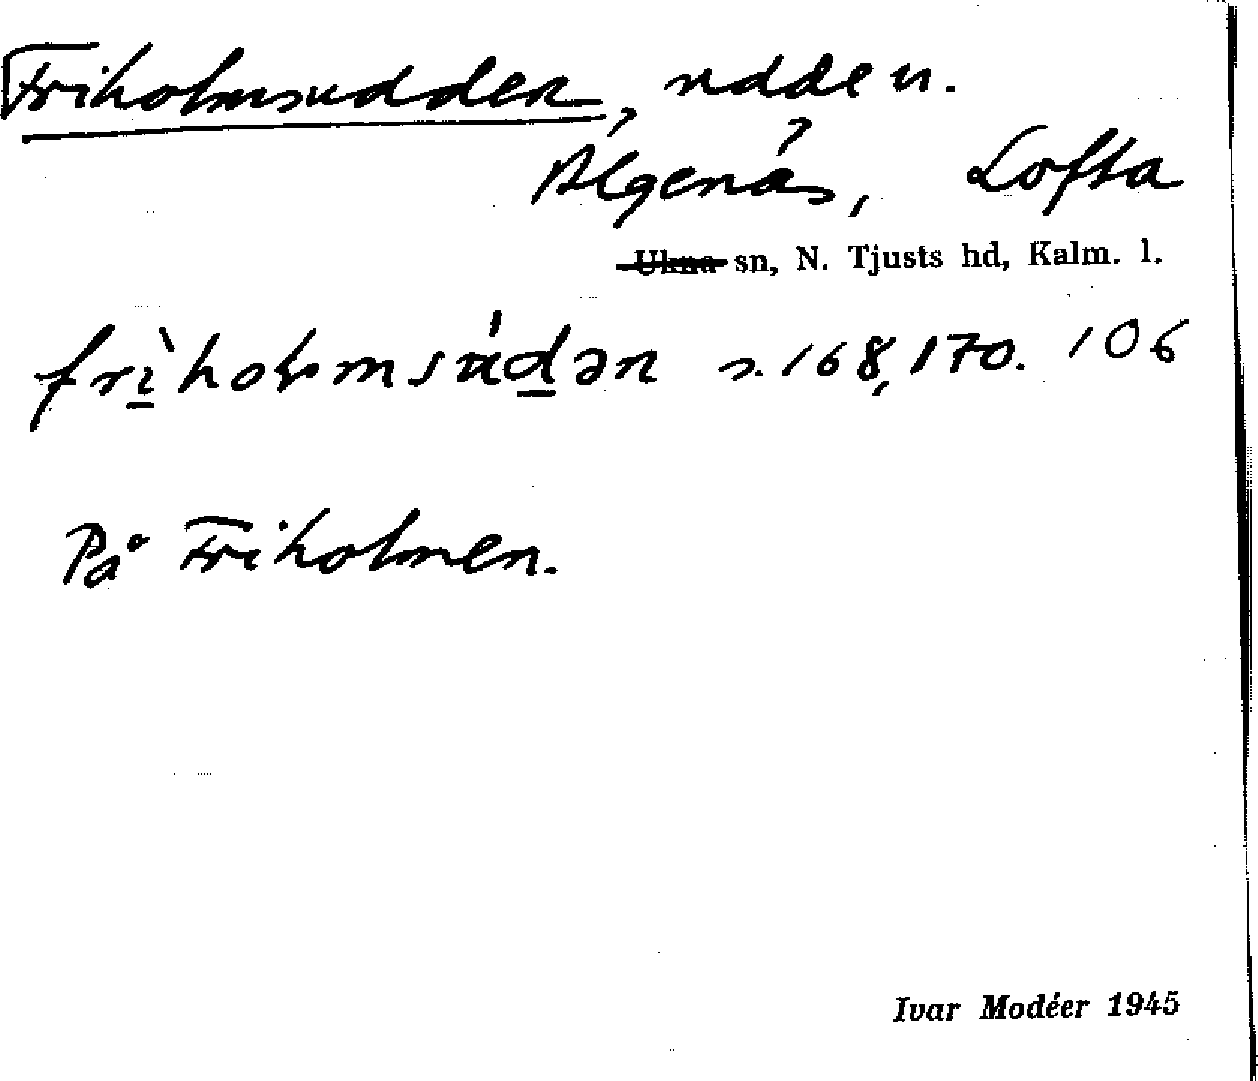 Friholmsudden, udden.
Älgenäs, Lofta
Ukna sn, N. Tjusts hd, Kalm. l.
s. 168, 170. 106
På Friholmen.
Ivar Modéer 1945